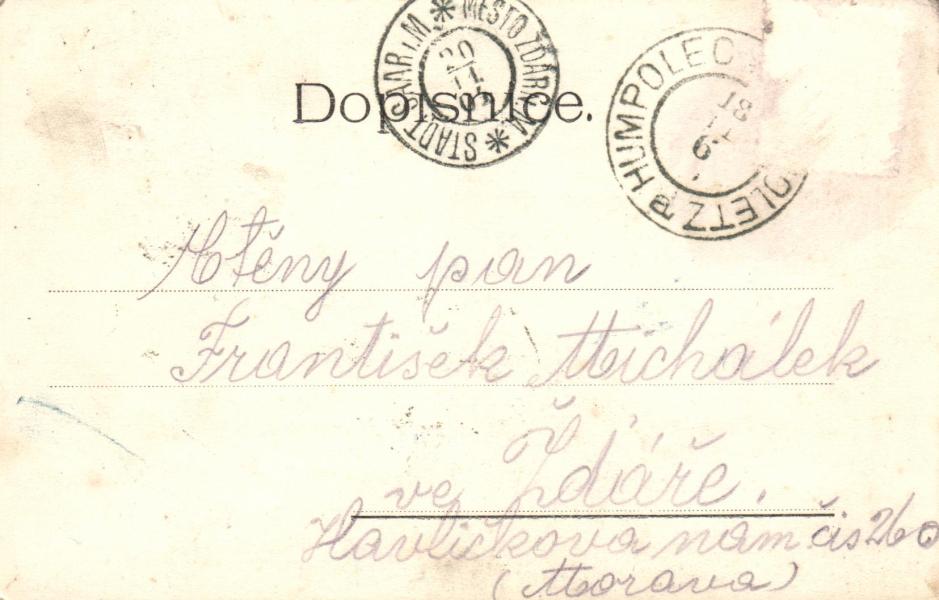 STADT SAAR i. M. * MĚSTO ŽĎÁR n. M. *
20
11
HUMPOLEC
18
6
Dopisnice.
Ctěný pan
František Michálek
ve Ždáře.
Havlíčkova nám. čis 260
(Morava)